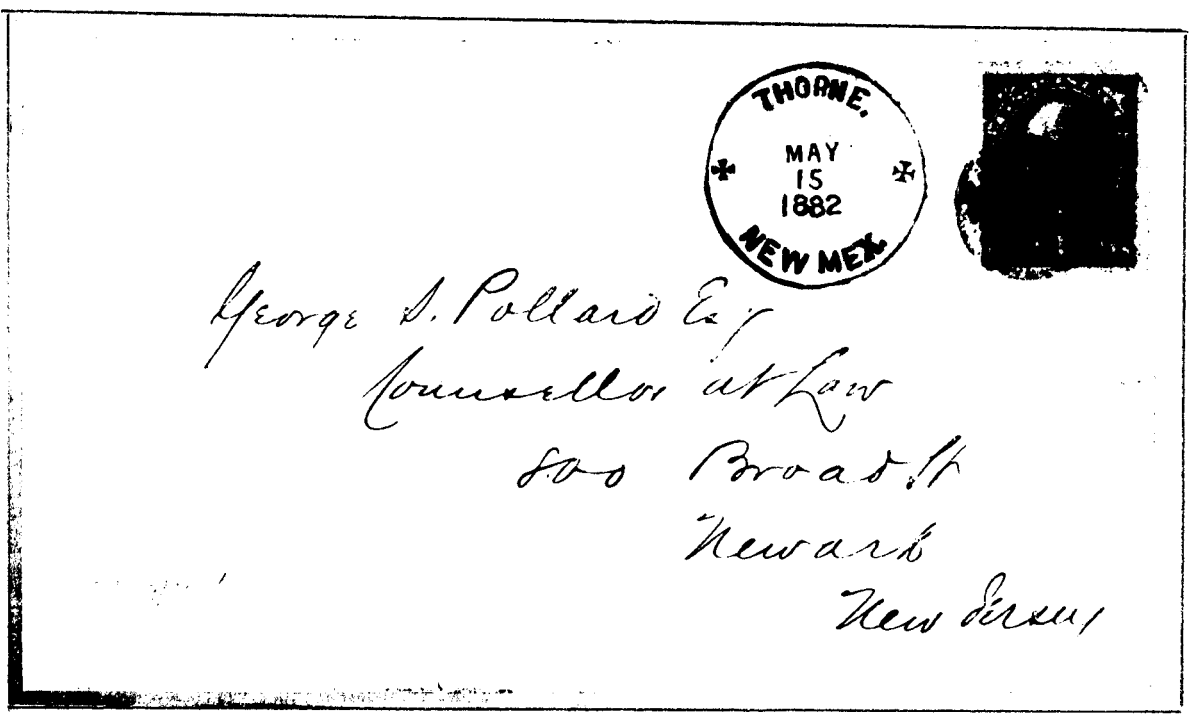 THORNE.
MAY
15
1882
NEW MEX.
George S. Pollard Esq
Counsellor at Law
800 Broad St
Newark
New Jersey